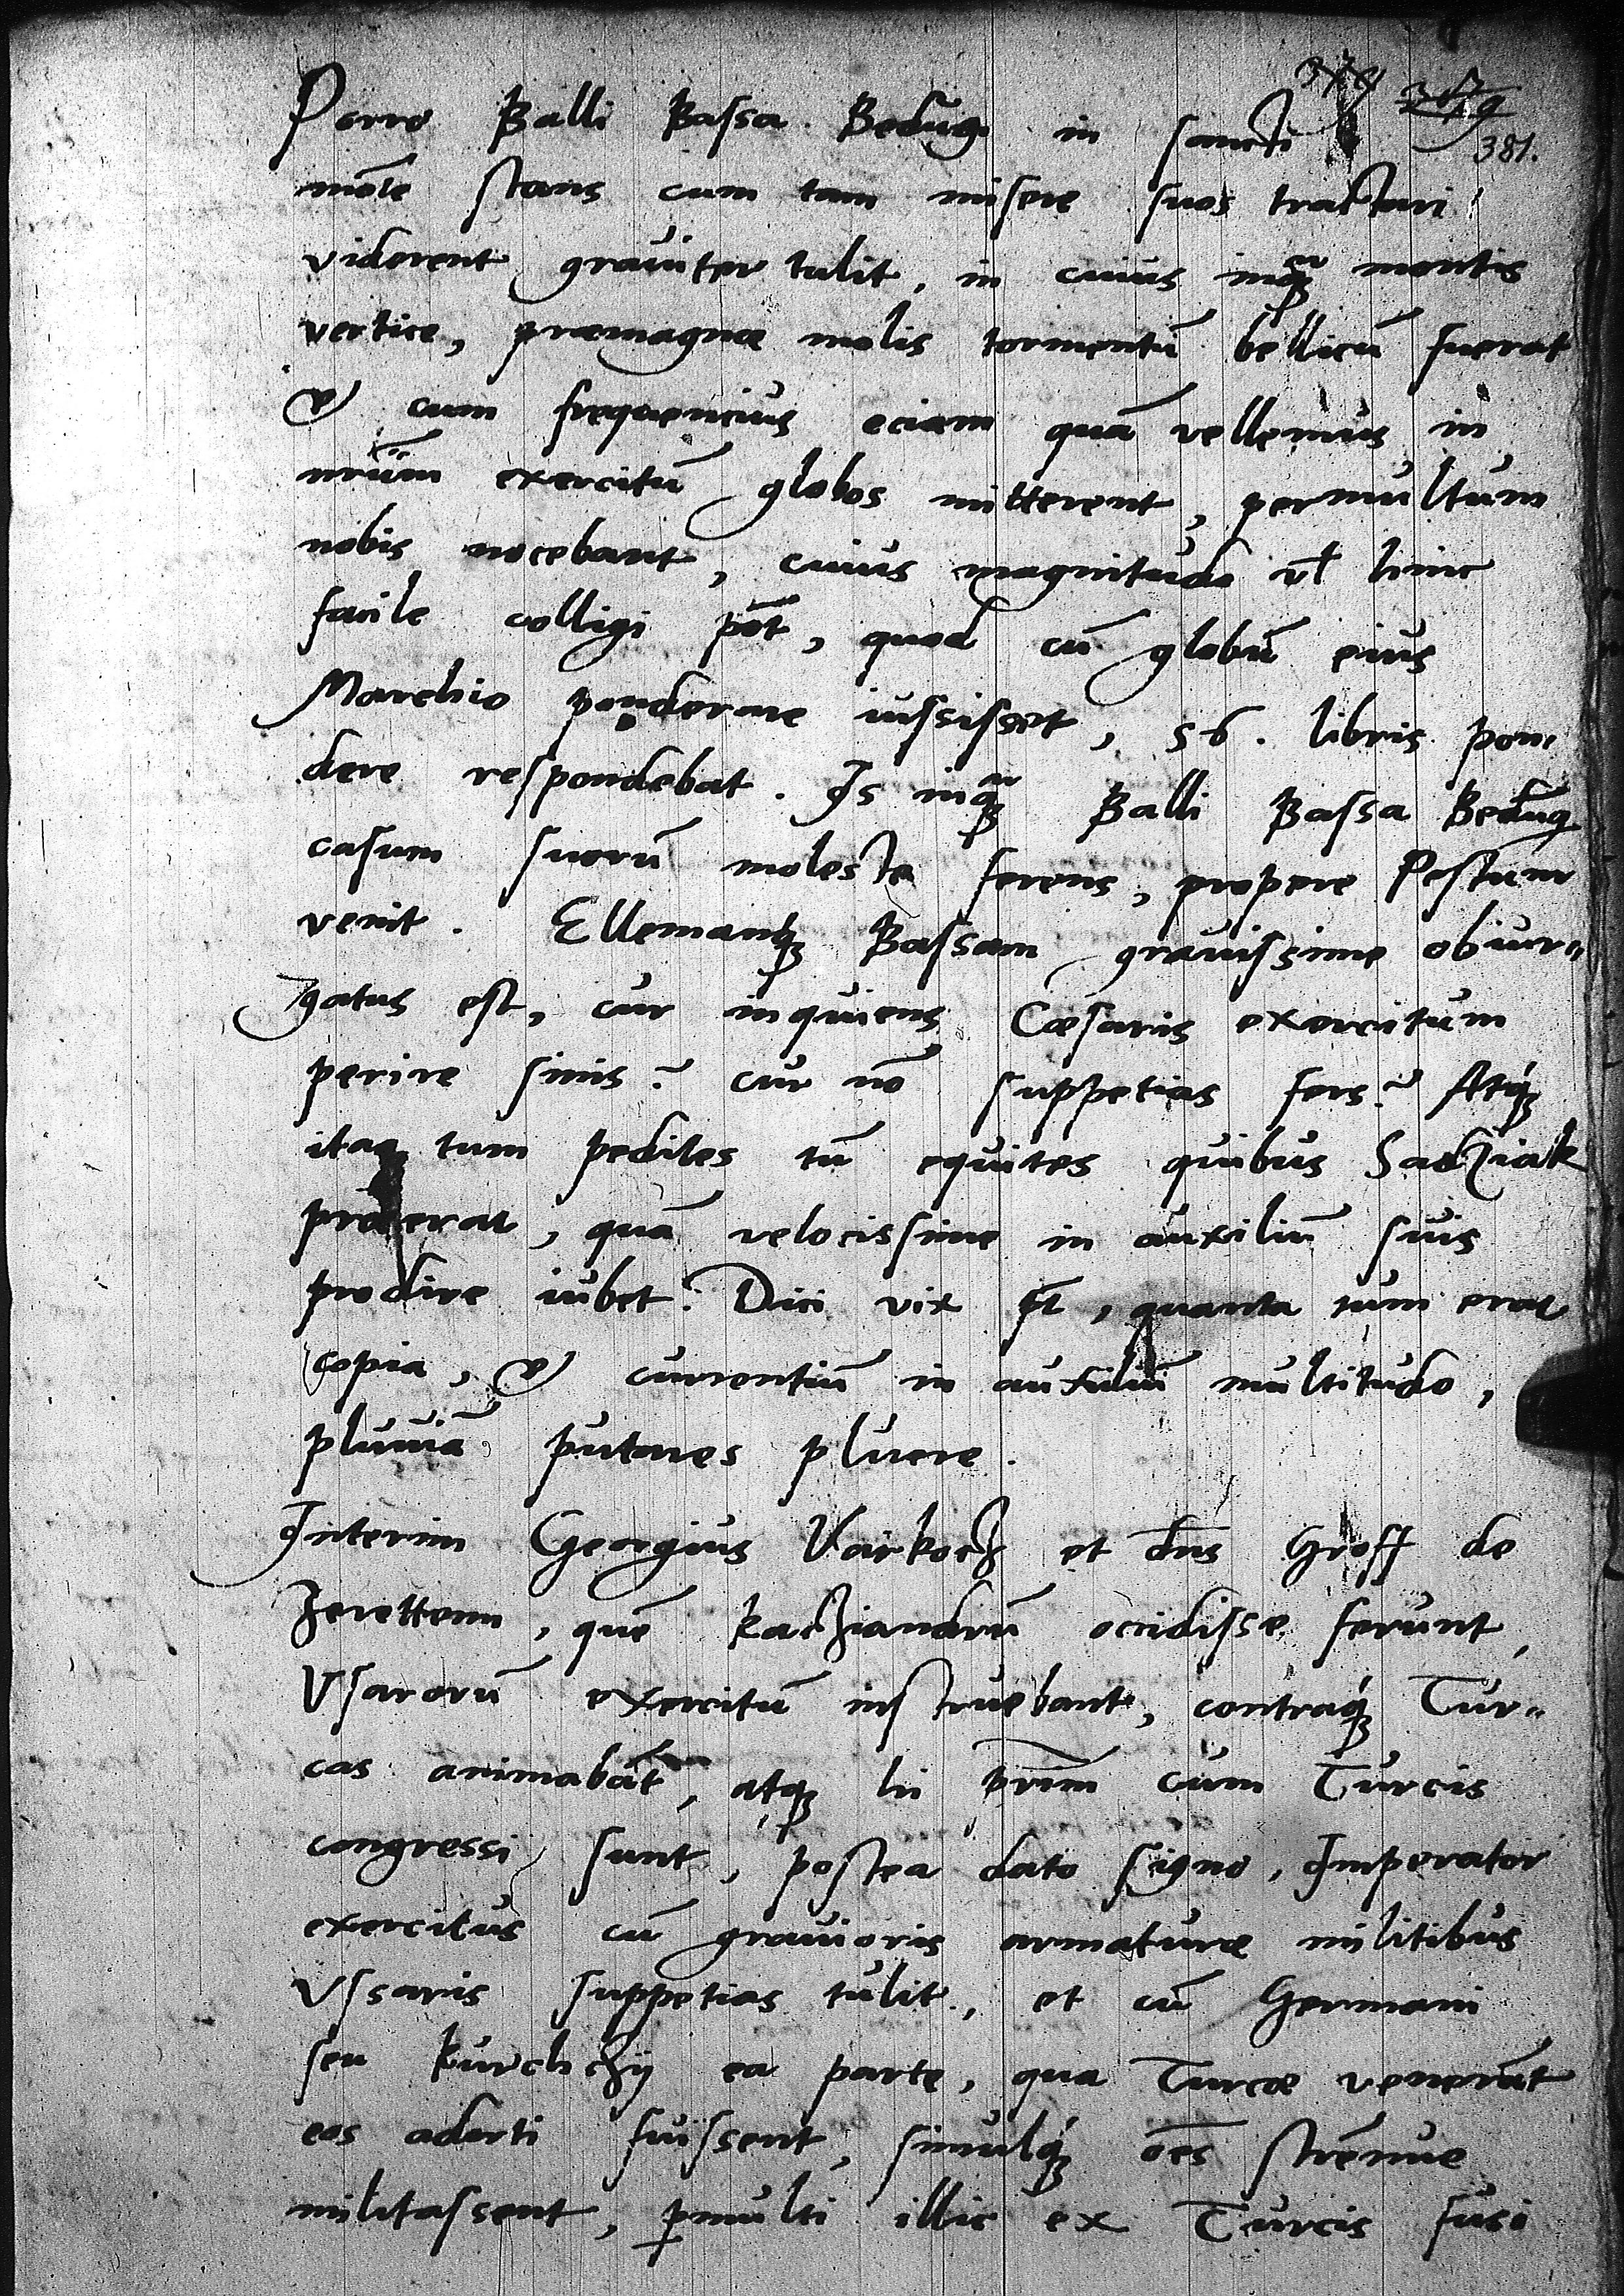 379 3879
381.
Porro Balli Bassa Beduӡ in sancti
mōte stans cum tam misere suos tractari
viderent grauiter tulit, in cuius inqͣӡ montis
vertice, præmagnæ molis tormentū bellicū fuerat
& cum frequencius eciam quā vellemus in
nrūm exercitū globos mitterent, permultum
nobis nocebant, cuius magnitudo vl hinc
facile colligi pōt, quod cū globū eius
Marchio ponderare iussisset, 56. libris pon,
dere respondebat. Is inqͣӡ Balli Bassa Beduӡ
casum suorū moleste ferens, propere Pestum
venit. Ellemanqӡ Bassam grauissime obiur„
gatus est, cur inquiens Cæsaris exercitum
perire sinis? cur nō suppetias fers? Atqӡ
itaq tum pedites tū equites quibus Sadziak
præerat, quā velocissime in auxiliū suis
prodire iubet. Dici vix pt, quanta tum erat
copia, & currentiū in auxiliū multitudo,
pluuiā putares pluere.
Interim Georgius Varkocz et dns Groff de
Zerettenn, quē Kacziandrū occidisse ferunt,
Vsarorū exercitū instruebant, contraqӡ Tur„
cas animabāt, atqӡ hi prim̄ cum Turcis
congressi sunt, postea dato signo, Imperator
exercitus cū grauioris armaturæ militibus
Vssaris suppetias tulit, et cū Germani
seu Kurchczij ea parte, qua Turcæ venerāt
eos adorti fuissent, simulqӡ ōes strēnue
militassent, pmulti illic ex Turcis fusi